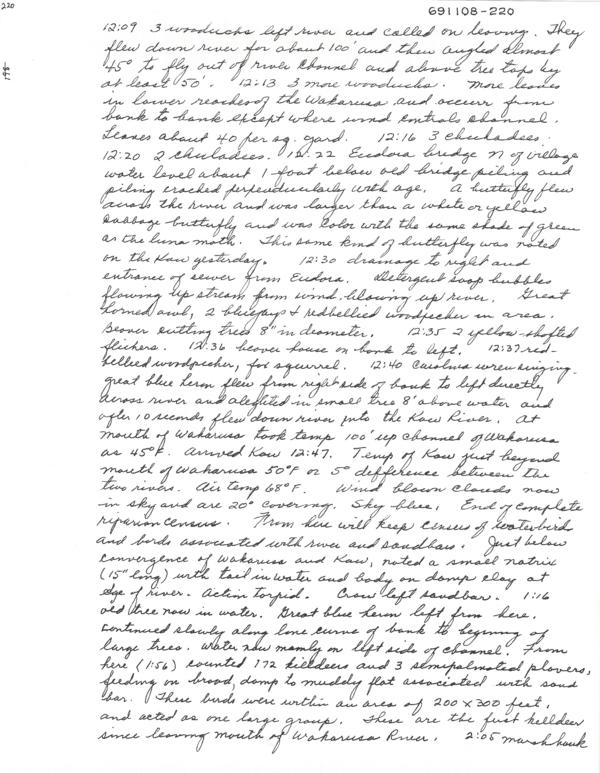 220
691108-220
198
12:09 3 woodducks left river and called on leaving. They
flew down river for about 100' and then angled almost
45° to fly out of river channel and above tree tops by
at least 50'. 12:13 3 more woodducks. More leaves
in lower reaches of the Wakarusa and occur from
bank to bank except where wind controls channel.
Leaves about 40 per sq. yard. 12:16 3 chickadees.
12:20 2 chickadees. 12:22 Eudora bridge N of village
water level about 1 foot below old bridge piling and
piling cracked perpendicularly with age. A butterfly flew
across the river and was larger than a white or yellow
cabbage butterfly and was color with the same shade of green
as the luna moth. This same kind of butterfly was noted
on the Kaw yesterday. 12:30 drainage to right and
entrance of sewer from Eudora. Detergent soap bubbles
flowing up stream from wind blowing up river. Great
horned owl, 2 bluejays & redbellied woodpecker in area.
Beaver cutting tree 8" in diameter. 12:35 2 yellow-shafted
flickers. 12:36 beaver house on bank to left. 12:37 red-
bellied woodpecker, fox squirrel. 12:40 Carolina wren singing.
great blue heron flew from right side of bank to left directly
across river and alighted in small tree 8' above water and
after 10 seconds flew down river into the Kaw River. At
mouth of Wakarusa took temp 100' up channel of Wakarusa
as 45°F. Arrived Kaw 12:47. Temp of Kaw just beyond
mouth of Wakarusa 50°F or 5° difference between the
two rivers. Air temp 68°F. Wind blown clouds now
in sky and are 20° covering. Sky blue. End of complete
riperian census. From here will keep census of waterbirds
and birds associated with river and sandbars. Just below
convergence of Wakarusa and Kaw, noted a small natrix
(15" long) with tail in water and body on damp clay at
edge of river. Action torpid. Crow left sandbar. 1:16
old tree now in water. Great blue heron left from here.
continued slowly along lone curve of bank to beginning of
large trees. Water now mainly on left side of channel. From
here (1:56) counted 172 killdeers and 3 semipalmated plovers,
feeding on broad, damp to muddy flat associated with sand
bar. These birds were within an area of 200 x 300 feet,
and acted as one large group. These are the first killdeer
since leaving mouth of Wakarusa River. 2:05 marsh hawk